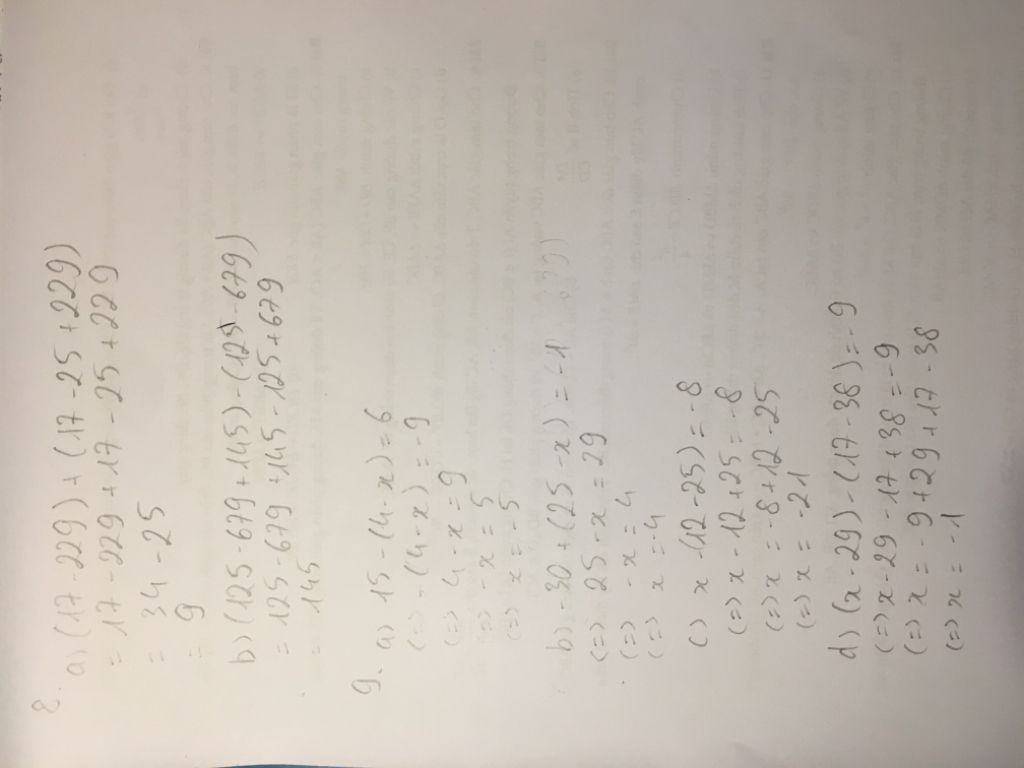 8.
a) (17 - 229) + (17 - 25 + 229)
= 17 - 229 + 17 - 25 + 229
= 34 - 25
= 9
b) (125 - 679 + 145) - (125 - 679)
= 125 - 679 + 145 - 125 + 679
= 145
9. a) 15 - (4 - x) = 6
(=) - (4 - x) = -9
(=) 4 - x = 9
(=) - x = 5
(=) x = -5
b) -30 + (25 - x) = -1
(=) 25 - x = 29
(=) - x = 4
(=) x = -4
c) x - (12 - 25) = -8
(=) x - 12 + 25 = -8
(=) x = -8 + 12 - 25
(=) x = -21
d) (x - 29) - (17 - 38) = -9
(=) x - 29 - 17 + 38 = -9
(=) x = -9 + 29 + 17 - 38
(=) x = -1